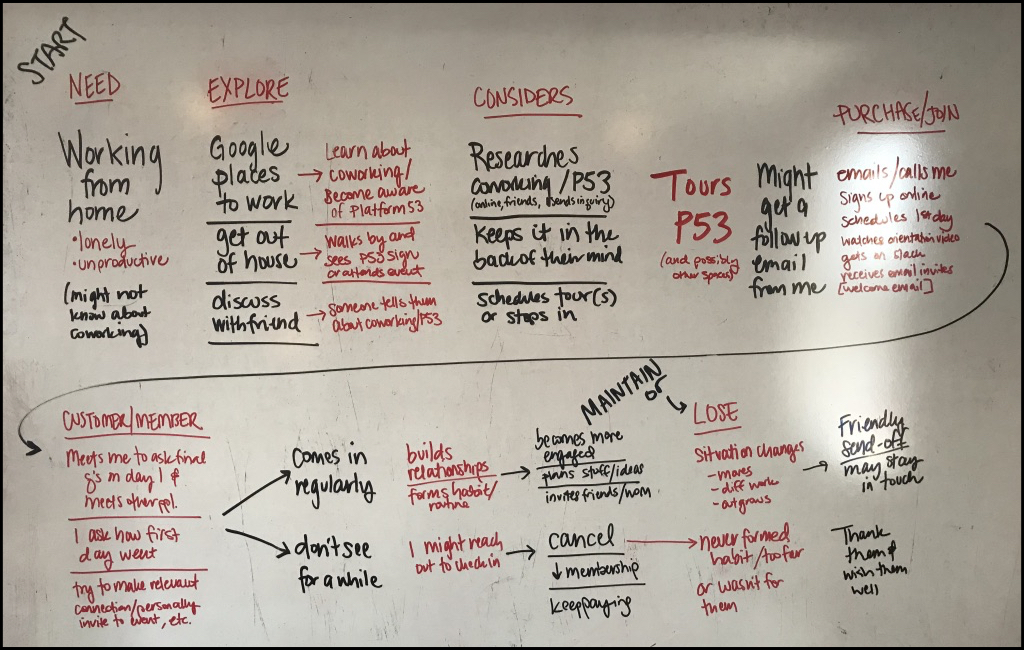 START
NEED
Working
from
home
• lonely
• unproductive
(might not
know about
coworking)
EXPLORE
Google
places
to work
get out
of house
discuss
with friend
Learn about
coworking/
Become aware
of Platform 53
Walks by and
sees P53 sign
or attends event
someone tells them
about coworking/P53
CONSIDERS
Researches
coworking/P53
(online, friends, sends inquiry)
Keeps it in the
back of their mind
schedules tour(s)
or stops in
Tours
P53
(and possibly
other spaces)
Might
get a
follow up
email
from me
PURCHASE/JOIN
emails/calls me
Signs up online
schedules 1st day
watches orientation video
gets on slack
receives email invites
[welcome email]
CUSTOMER/MEMBER
Meets me to ask final
q's on day 1 &
meets other ppl.
I ask how first
day went
try to make relevant
connection/personally
invite to event, etc.
Comes in
regularly
don't see
for a while
builds
relationships
forms habit/
routine
I might reach
out to check in
MAINTAIN
or
becomes more
engaged
plans stuff/ideas
invites friends/WOM
cancel
↓ membership
keep paying
LOSE
Situation changes
- moves
- diff work
- outgrows
never formed
habit/too far
or wasn't for
them
Friendly
send-off
may stay
in touch
Thank
them &
wish them
well